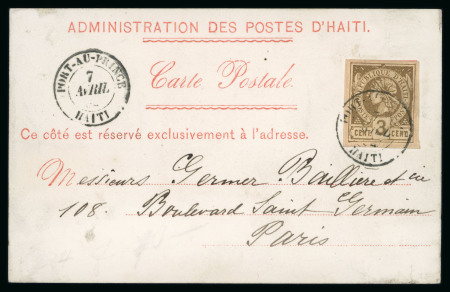 ADMINISTRATION DES POSTES D'HAITI.
PORT-AU-PRINCE
7
AVRIL
HAITI
Carte Postale.
RÉPUBLIQUE D'HAITI
3
CENT CENT
HAITI
Ce côté est réservé exclusivement à l'adresse.
Messieurs Germer Baillière et cie
108. Boulevard Saint Germain
Paris